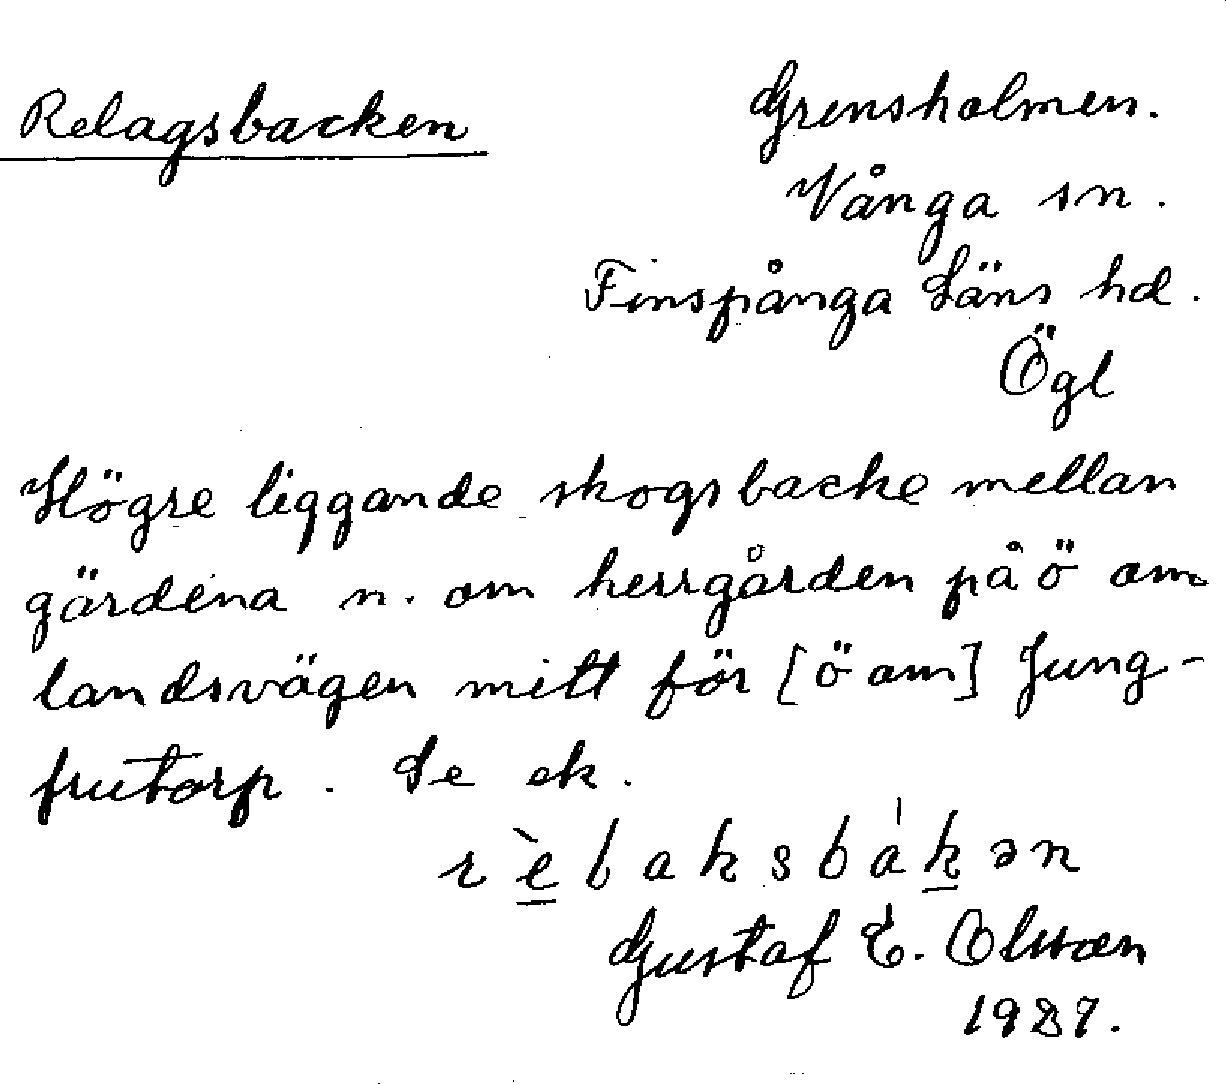 Relagsbacken
Grensholmen.
Vånga sn.
Finspånga Läns hd.
Ögl
Högre liggande skogsbacke mellan
gärdena n. om herrgården på ö om
landsvägen mitt för [ö om] Jung-
frutorp. Se ek.
Gustaf E. Olsson